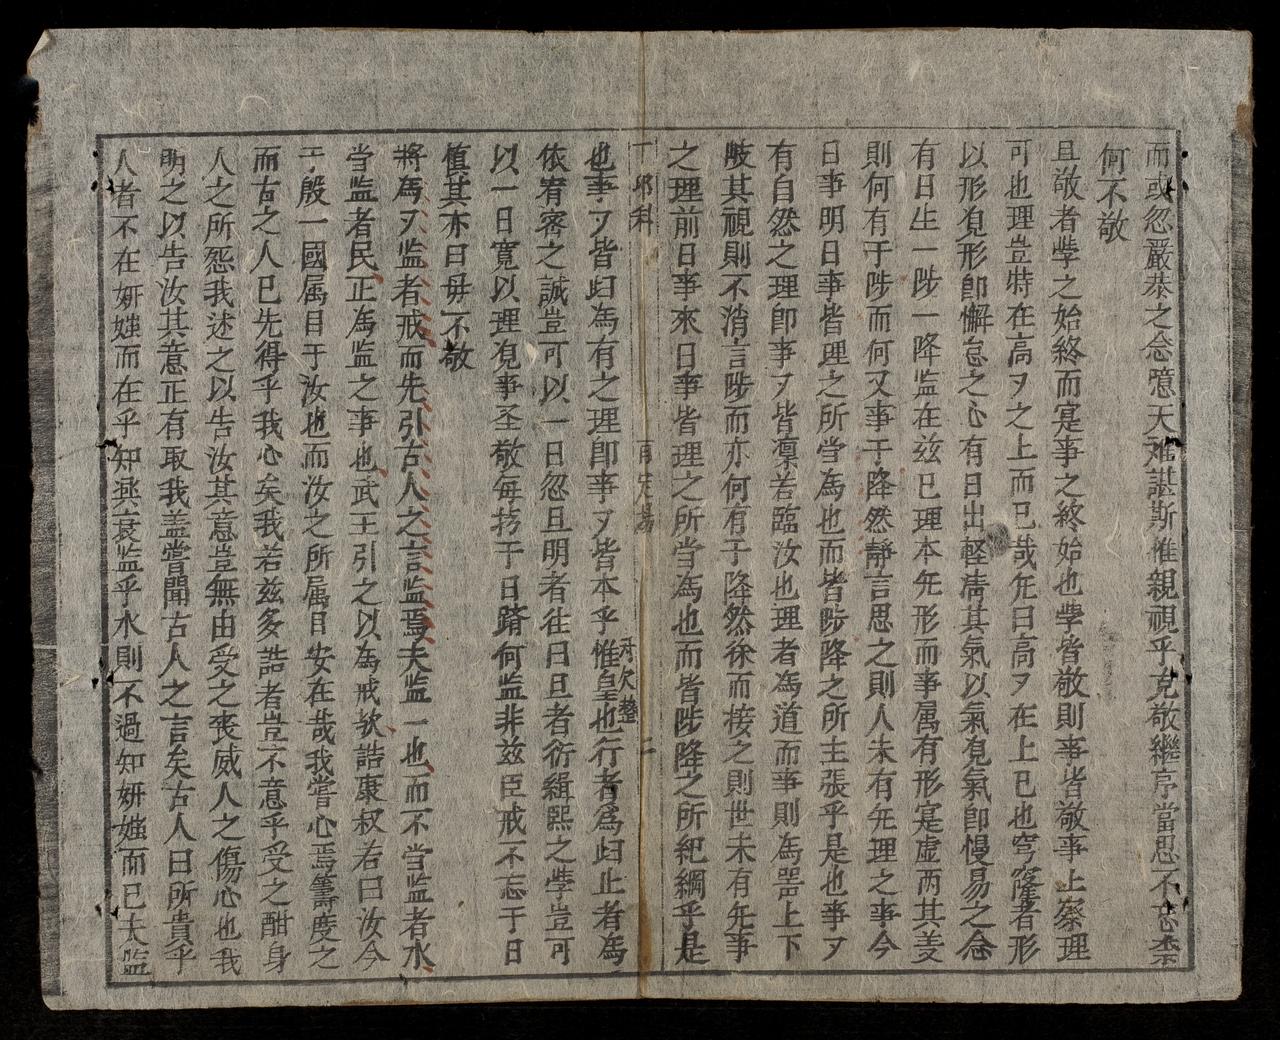 而或忽嚴恭之念噫天难諶斯惟親視乎克敬繼序當思不忘柰
何不敬
且敬者孝之始終而寔事之終始也孝皆敬則事皆敬事上察理
可也理豈特在高ヌ之上而已哉旡曰高ヌ在上已也穹窿者形
以形覓形卽懈怠之心有日出輕清其氣以氣覓氣卽慢易之念
有日生一陟一降监在兹已理本旡形而事属有形寔虚两其姜
則何有于陟而何又事于降然靜言思之則人未有旡理之事今
日事明日事皆理之所当為也而皆陟降之所主張乎是也事ヌ
有自然之理卽事ヌ皆凛若臨汝也理者為道而事則為噐上下
岐其視則不消言陟而亦何有于降然徐而接之則世未有旡事
之理前日事來日事皆理之所当為也而皆陟降之所紀綱乎是
丁邜科
二
也事ヌ皆归為有之理卽事ヌ皆本乎惟皇也行者為归止者為
依宥密之誠豈可以一日忽且明者往曰旦者衍緝熙之孝豈可
以一日寬以理覓事圣敬每芴于日躋何监非兹臣戒不忘于日
值其亦曰毋不敬
將為ヌ监者戒而先引古人之言监焉夫监一也而不当监者水
当监者民正為监之事也武王引之以為戒欤誥康叔若曰汝今
于殷一國属目于汝也而汝之所属目安在哉我嘗心焉籌度之
而古之人已先得乎我心矣我若兹多誥者豈不意乎受之酣身
人之所怨我述之以告汝其意豈無由受之丧威人之傷心也我
明之以告汝其意正有取我盖嘗聞古人之言矣古人曰所貴乎
人者不在妍媸而在乎知興衰监乎水則不過知妍媸而已夫监